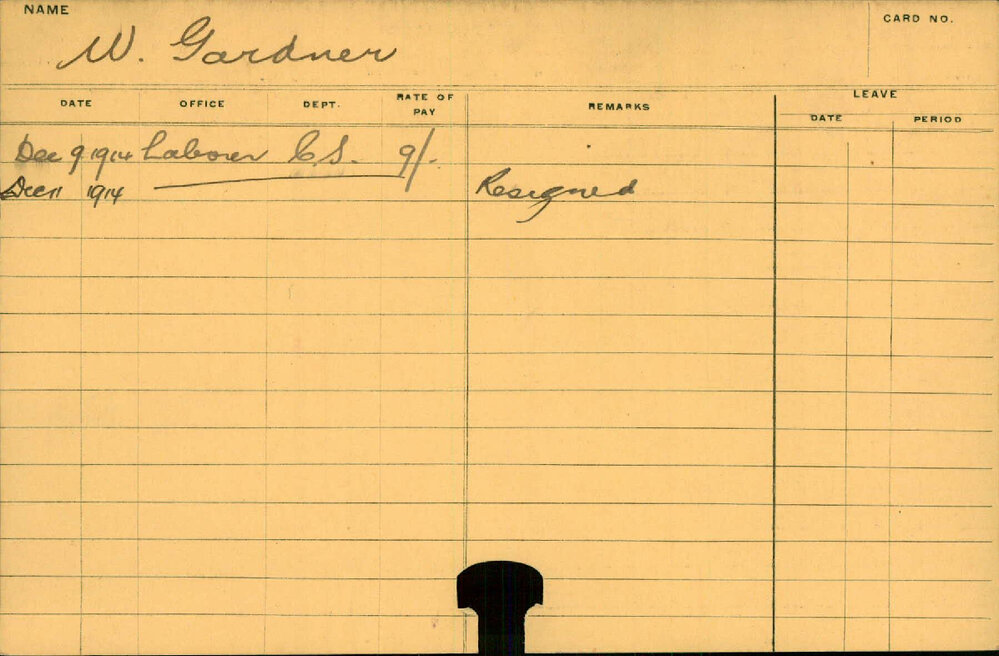 NAME
W. Gardner
CARD NO.
DATE OFFICE DEPT. RATE OF PAY REMARKS LEAVE
DATE PERIOD
Dec 9 1914 Labourer C.S. 9/-
Dec 11 1914 Resigned